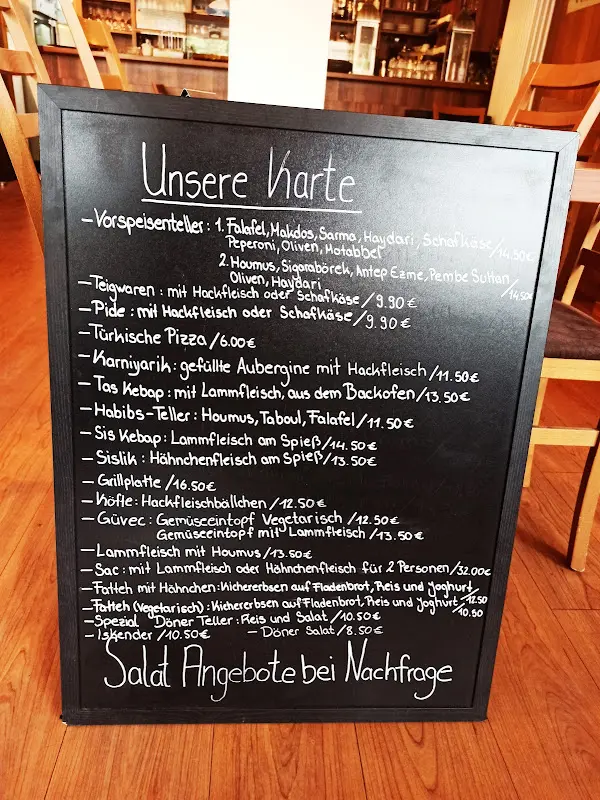 Unsere Karte
- Vorspeisenteller: 1. Falafel, Makdos, Sarma, Haydari, Schafkäse/14.50€
Peperoni, Oliven, Motabbel
2. Houmus, Sigarabörek, Antep Ezme, Pembe Sultan,
Oliven, Haydari /14.50€
- Teigwaren: mit Hackfleisch oder Schafkäse/9.90€
- Pide: mit Hackfleisch oder Schafkäse/9.90€
- Türkische Pizza/6.00€
- Karniyarik: gefüllte Aubergine mit Hackfleisch/11.50€
- Tas Kebap: mit Lammfleisch, aus dem Backofen/13.50€
- Habibs-Teller: Houmus, Taboul, Falafel/11.50€
- Sis Kebap: Lammfleisch am Spieß/14.50€
- Sislik: Hähnchenfleisch am Spieß/13.50€
- Grillplatte/16.50€
- Köfte: Hackfleischbällchen/12.50€
- Güvec: Gemüseeintopf Vegetarisch/12.50€
Gemüseeintopf mit Lammfleisch/13.50€
- Lammfleisch mit Houmus/13.50€
- Sac: mit Lammfleisch oder Hähnchenfleisch für 2 Personen/32.00€
- Fatteh mit Hähnchen: Kichererbsen auf Fladenbrot, Reis und Joghurt/12.50
- Fatteh (Vegetarisch): Kichererbsen auf Fladenbrot, Reis und Joghurt/10.50
- Spezial Döner Teller: Reis und Salat/10.50€
- Iskender/10.50€ - Döner Salat/8.50€
Salat Angebote bei Nachfrage